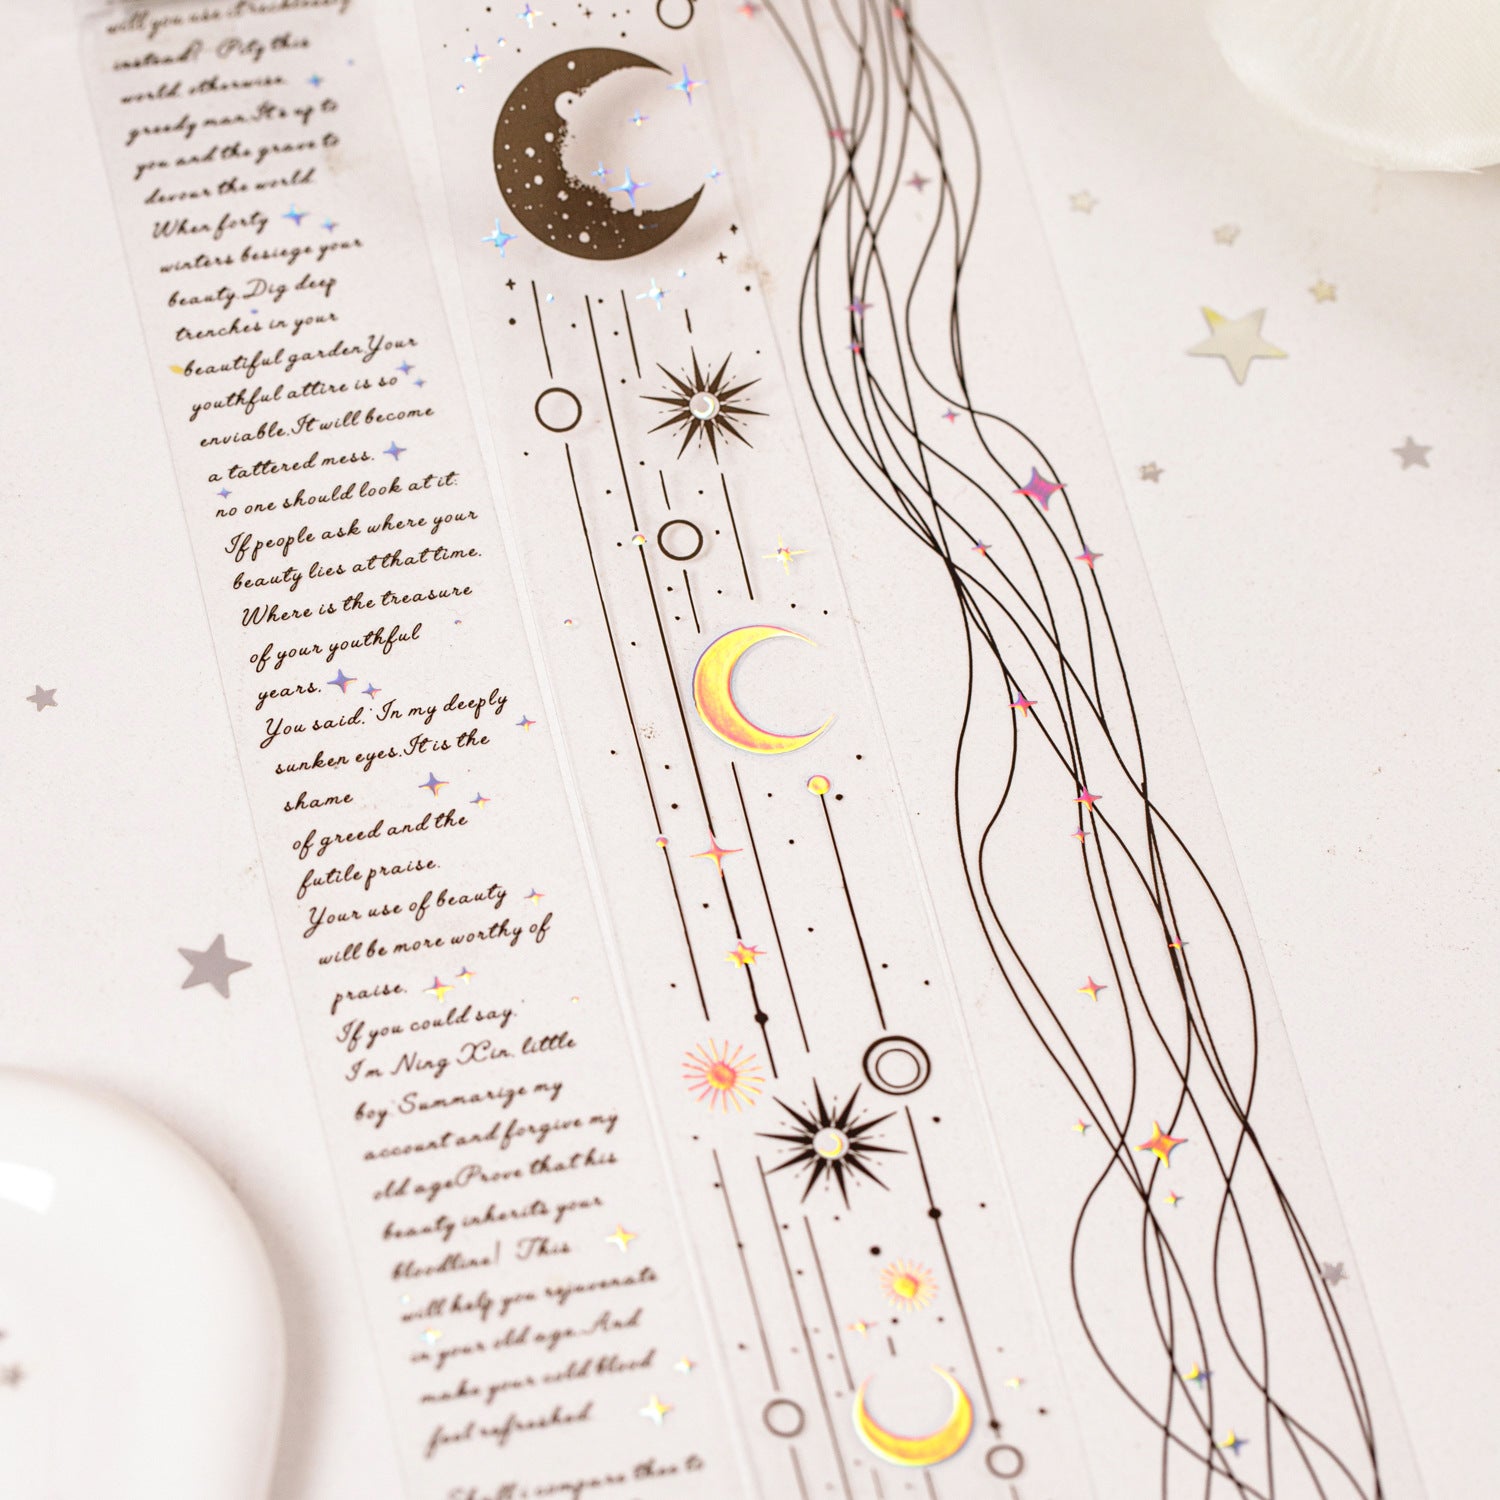 will you use it recklessly
instead? Pity this
world, otherwise.
greedy man.It's up to
you and the grave to
devour the world
When forty
winters besiege your
beauty.Dig deep
trenches in your
beautiful garden.Your
youthful attire is so
enviable.It will become
a tattered mess.
no one should look at it:
If people ask where your
beauty lies at that time.
Where is the treasure
of your youthful
years.
You said,'In my deeply
sunken eyes.It is the
shame
of greed and the
futile praise.
Your use of beauty
will be more worthy of
praise.
If you could say,'
I'm Ning Xin, little
boy'Summarize my
account and forgive my
old ageProve that his
beauty inherits your
bloodline! This
will help you rejuvenate
in your old age.And
make your cold blood
feel refreshed
Shall i compare thee to